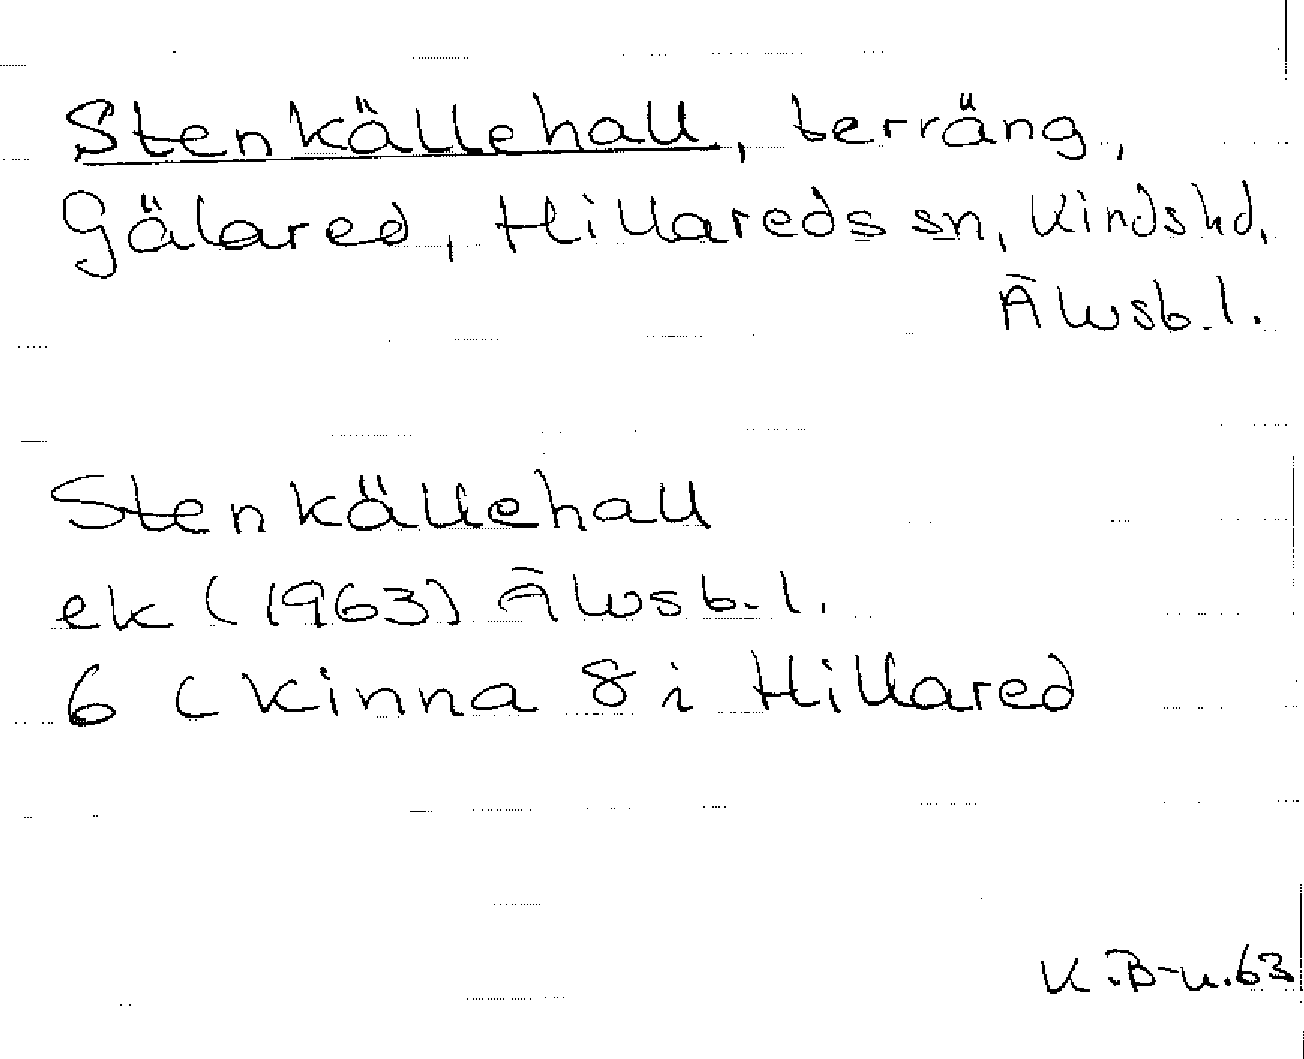 Stenkällehall, terräng,
Gälared, Hillareds sn, Kinds hd,
Älvsb. l.
Stenkällehall
ek (1963) Älvsb. l.
6 C Kinna 8 i Hillared
K.B-n.63